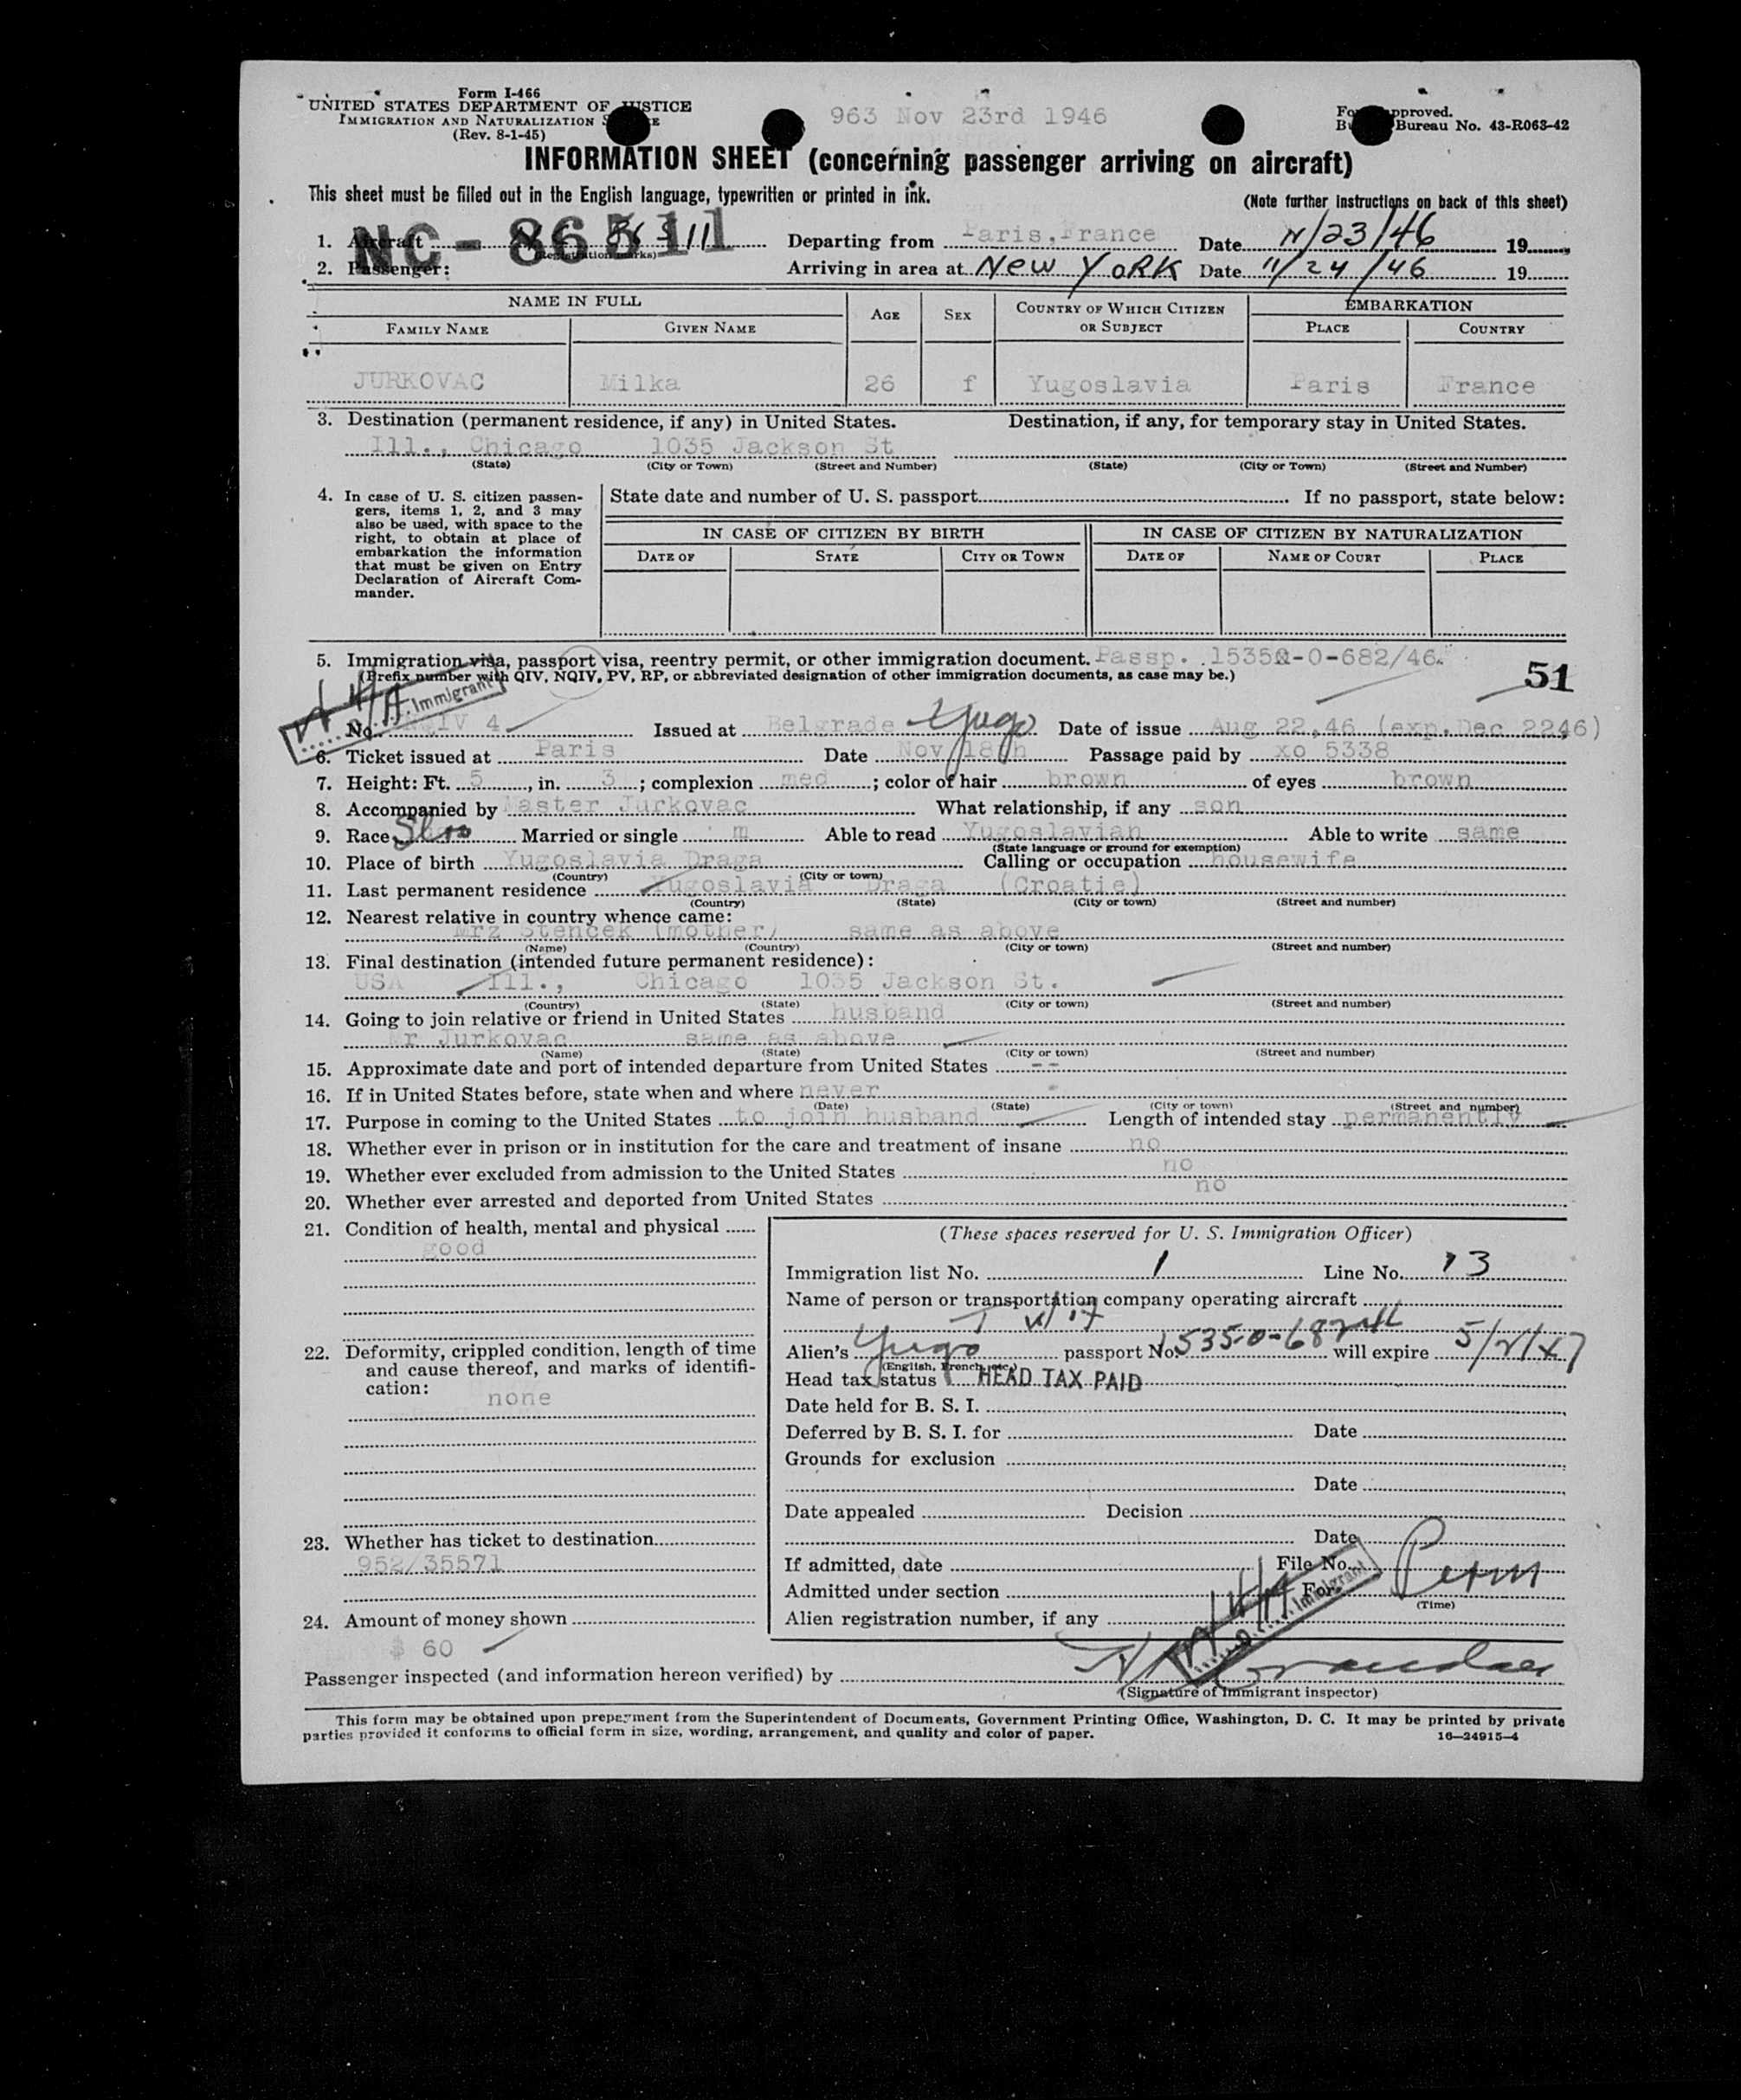 Form I-466
UNITED STATES DEPARTMENT OF JUSTICE
IMMIGRATION AND NATURALIZATION
(Rev. 8-1-45)
963 Nov 23rd 1946
Bureau No. 43-R063-42
INFORMATION SHEET (concerning passenger arriving on aircraft)
This sheet must be filled out in the English language, typewritten or printed in ink.
(Note further instructions on back of this sheet)
1. Aircraft NC-86511 Departing from Paris, France Date 11/23/46 19
(Registration marks)
2. Passenger: Arriving in area at NEW YORK Date 11/24/46 19
NAME IN FULL AGE SEX COUNTRY OF WHICH CITIZEN OR SUBJECT EMBARKATION
FAMILY NAME GIVEN NAME PLACE COUNTRY
JURKOVAC Milka 26 f Yugoslavia Paris France
3. Destination (permanent residence, if any) in United States. Destination, if any, for temporary stay in United States.
Ill., Chicago 1035 Jackson St
(State) (City or Town) (Street and Number) (State) (City or Town) (Street and Number)
4. In case of U. S. citizen passen-
gers, items 1, 2, and 3 may
also be used, with space to the
right, to obtain at place of
embarkation the information
that must be given on Entry
Declaration of Aircraft Com-
mander.
State date and number of U. S. passport If no passport, state below:
IN CASE OF CITIZEN BY BIRTH IN CASE OF CITIZEN BY NATURALIZATION
DATE OF STATE CITY OR TOWN DATE OF NAME OF COURT PLACE
5. Immigration visa, passport visa, reentry permit, or other immigration document. Passp. 1535-0-682/46.
(Prefix number with QIV, NQIV, PV, RP, or abbreviated designation of other immigration documents, as case may be.)
51
Immigrant
No. NQIV 4 Issued at Belgrade Yugo Date of issue Aug 22,46 (exp.Dec 2246)
6. Ticket issued at Paris Date Nov 18th Passage paid by xo 5338
7. Height: Ft. 5, in. 3; complexion med; color of hair brown of eyes brown
8. Accompanied by Master Jurkovac What relationship, if any son
9. Race Married or single m Able to read Yugoslavian Able to write same
(State language or ground for exemption)
10. Place of birth Yugoslavia Draga Calling or occupation housewife
(Country) (City or town)
11. Last permanent residence Yugoslavia Draga (Croatie)
(Country) (State) (City or town) (Street and number)
12. Nearest relative in country whence came:
Mrz Stencek (mother) same as above
(Name) (Country) (City or town) (Street and number)
13. Final destination (intended future permanent residence):
USA Ill., Chicago 1035 Jackson St.
(Country) (State) (City or town) (Street and number)
14. Going to join relative or friend in United States husband
Mr Jurkovac same as above
(Name) (State) (City or town) (Street and number)
15. Approximate date and port of intended departure from United States --
16. If in United States before, state when and where never
(Date) (State) (City or town) (Street and number)
17. Purpose in coming to the United States to join husband Length of intended stay permanently
18. Whether ever in prison or in institution for the care and treatment of insane no
19. Whether ever excluded from admission to the United States no
20. Whether ever arrested and deported from United States no
21. Condition of health, mental and physical
good
22. Deformity, crippled condition, length of time
and cause thereof, and marks of identifi-
cation:
none
23. Whether has ticket to destination
952/35571
24. Amount of money shown
$ 60
(These spaces reserved for U. S. Immigration Officer)
Immigration list No. 1 Line No. 13
Name of person or transportation company operating aircraft
Alien's Yugo passport No. will expire
(English, French, etc.)
Head tax status HEAD TAX PAID
Date held for B. S. I.
Deferred by B. S. I. for Date
Grounds for exclusion
Date
Date appealed Decision
Date
If admitted, date File No.
Admitted under section For Perm
(Time)
Alien registration number, if any
Immigrant
Passenger inspected (and information hereon verified) by
(Signature of Immigrant inspector)
This form may be obtained upon prepayment from the Superintendent of Documents, Government Printing Office, Washington, D. C. It may be printed by private
parties provided it conforms to official form in size, wording, arrangement, and quality and color of paper.
16—24915-4